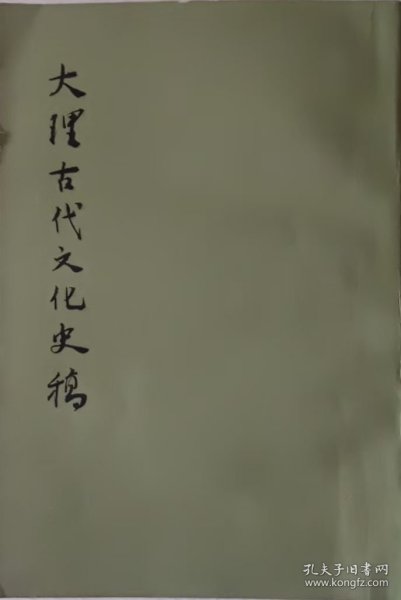 大理古代文化史稿
孔夫子旧书网
www.kongfz.com